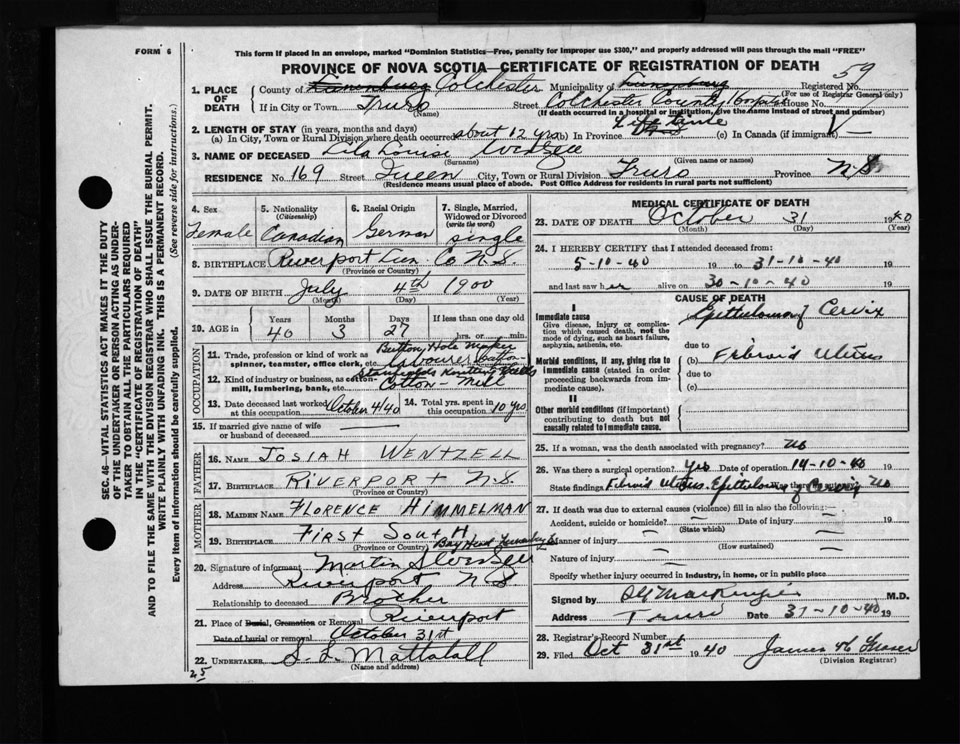 FORM 6
This form if placed in an envelope, marked "Dominion Statistics—Free, penalty for improper use $300," and properly addressed will pass through the mail "FREE"
PROVINCE OF NOVA SCOTIA—CERTIFICATE OF REGISTRATION OF DEATH
59
1. PLACE OF DEATH
County of Lunenburg Colchester Municipality of Lunenburg Registered No.
(For use of Registrar General only)
If in City or Town Truro Street Colchester County Hospital House No.
(Name) (If death occurred in a hospital or institution, give the name instead of street and number)
2. LENGTH OF STAY (in years, months and days)
(a) In City, Town or Rural Division where death occurred about 12 yrs (b) In Province Life time (c) In Canada (if immigrant)
3. NAME OF DECEASED Lila Louise Wentzell
(Surname) (Given name or names)
RESIDENCE No. 169 Street Queen City, Town or Rural Division Truro Province N.S.
(Residence means usual place of abode. Post Office Address for residents in rural parts not sufficient)
4. Sex Female
5. Nationality (Citizenship) Canadian
6. Racial Origin German
7. Single, Married, Widowed or Divorced (write the word) single
8. BIRTHPLACE Riverport Lun Co N.S.
(Province or Country)
9. DATE OF BIRTH July 4th 1900
(Month) (Day) (Year)
10. AGE in Years Months Days If less than one day
40 3 27 hrs. or min.
OCCUPATION
11. Trade, profession or kind of work as spinner, teamster, office clerk, etc. Button Hole Worker Labourer Cotton
12. Kind of industry or business, as cotton-mill, lumbering, bank, etc. Stanfields Knitting Mills
Cotton-Mill
13. Date deceased last worked at this occupation October 4/40
14. Total yrs. spent in this occupation 10 yrs
15. If married give name of wife or husband of deceased —
FATHER
16. NAME JOSIAH WENTZELL
17. BIRTHPLACE RIVERPORT N.S.
(Province or Country)
MOTHER
18. MAIDEN NAME FLORENCE HIMMELMAN
19. BIRTHPLACE FIRST SOUTH
(Province or Country)
20. Signature of informant Martin S Wentzell
Address Riverport N S
Relationship to deceased Brother
21. Place of Burial, Cremation or Removal Riverport
Date of burial or removal October 31st
22. UNDERTAKER S. L. Mattatall
(Name and address)
25
MEDICAL CERTIFICATE OF DEATH
23. DATE OF DEATH October 31 1940
(Month) (Day) (Year)
24. I HEREBY CERTIFY that I attended deceased from:
5-10-40 19 to 31-10-40 19
and last saw her alive on 30-10-40 19
CAUSE OF DEATH
I
Immediate cause
Give disease, injury or complication which caused death, not the mode of dying, such as heart failure, asphyxia, asthenia, etc.
Epithelioma of Cervix
due to
Morbid conditions, if any, giving rise to immediate cause (stated in order proceeding backwards from immediate cause).
(b) Fibroid Uterus
due to
(c)
II
Other morbid conditions (if important) contributing to death but not causally related to immediate cause.
25. If a woman, was the death associated with pregnancy? No
26. Was there a surgical operation? Yes Date of operation 14-10-40 19
State findings Fibroid Uterus. Epithelioma of Cervix No
27. If death was due to external causes (violence) fill in also the following:—
Accident, suicide or homicide? — Date of injury —
(State which)
Manner of injury — —
(How sustained)
Nature of injury —
Specify whether injury occurred in industry, in home, or in public place
Signed by MacKenzie M.D.
Address Truro Date 31-10-40 19
28. Registrar's Record Number
29. Filed Oct 31st 1940 James W Fraser
(Division Registrar)
SEC. 46—VITAL STATISTICS ACT MAKES IT THE DUTY OF THE UNDERTAKER OR PERSON ACTING AS UNDERTAKER TO OBTAIN ALL THE PARTICULARS REQUIRED IN THE "CERTIFICATE OF REGISTRATION OF DEATH" AND TO FILE THE SAME WITH THE DIVISION REGISTRAR WHO SHALL ISSUE THE BURIAL PERMIT.
WRITE PLAINLY WITH UNFADING INK. THIS IS A PERMANENT RECORD.
Every item of information should be carefully supplied. (See reverse side for instructions.)